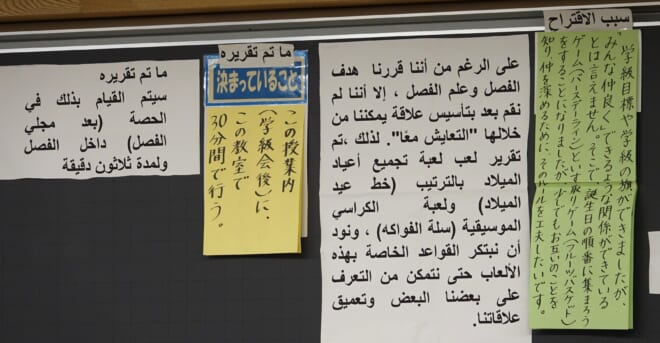 سبب الاقتراح
学級目標や学級の旗ができましたが、
「みんな仲良く」できるような関係ができている
とは言えません。そこで、誕生日の順番に集まろう
ゲーム(バースデーライン)といす取りゲーム(フルーツバスケット)
をすることになりましたが、少しでもお互いのことを
知り仲を深めるために、そのルールを工夫したいです。
على الرغم من أننا قررنا هدف
الفصل وعلم الفصل ، إلا أننا لم
نقم بعد بتأسيس علاقة يمكننا من
خلالها "التعايش معًا". لذلك ،تم
تقرير لعب لعبة تجميع أعياد
الميلاد بالترتيب (خط عيد
الميلاد) ولعبة الكراسي
الموسيقية (سلة الفواكه) ، ونود
أن نبتكر القواعد الخاصة بهذه
الألعاب حتى نتمكن من التعرف
على بعضنا البعض وتعميق
علاقاتنا.
ما تم تقريره
決まっていること
この授業内
(学級会後)に、
この教室で
30分間で行う。
ما تم تقريره
سيتم القيام بذلك في
الحصة (بعد مجلي
الفصل) داخل الفصل
ولمدة ثلاثون دقيقة